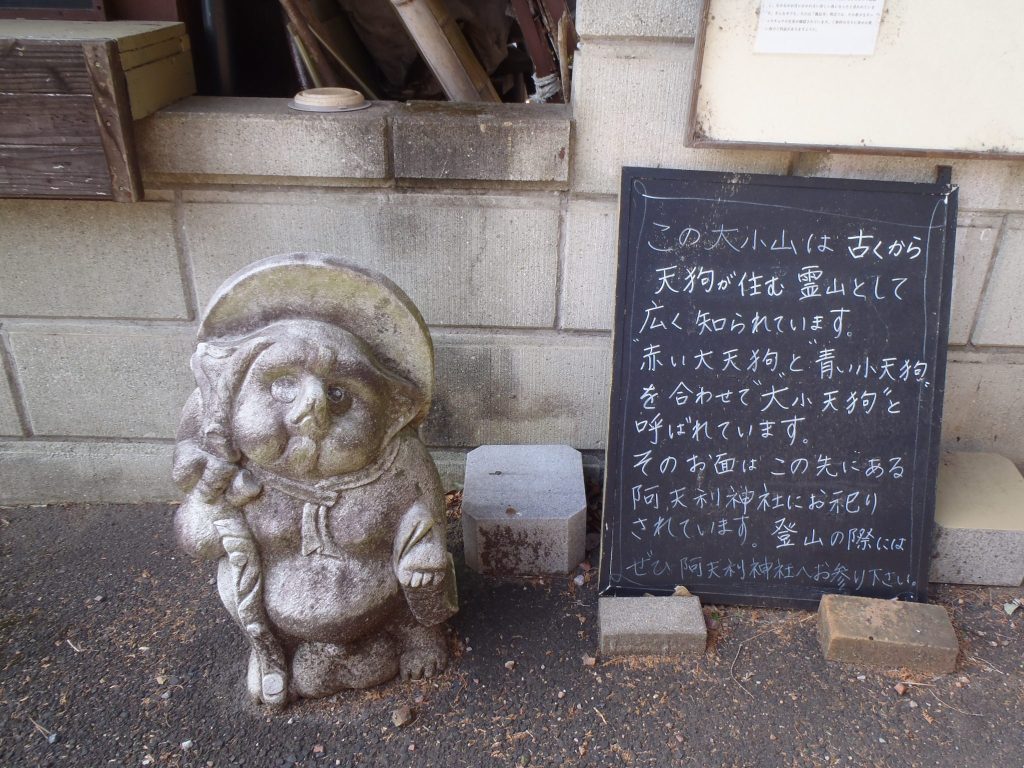 この大小山は 古くから
天狗が住む 霊山として
広く知られています。
"赤い大天狗"と"青い小天狗"
を合わせて"大小天狗"と
呼ばれています。
そのお面は この先にある
阿夫利神社にお祀り
されています。登山の際には
ぜひ阿夫利神社へお参り下さい。